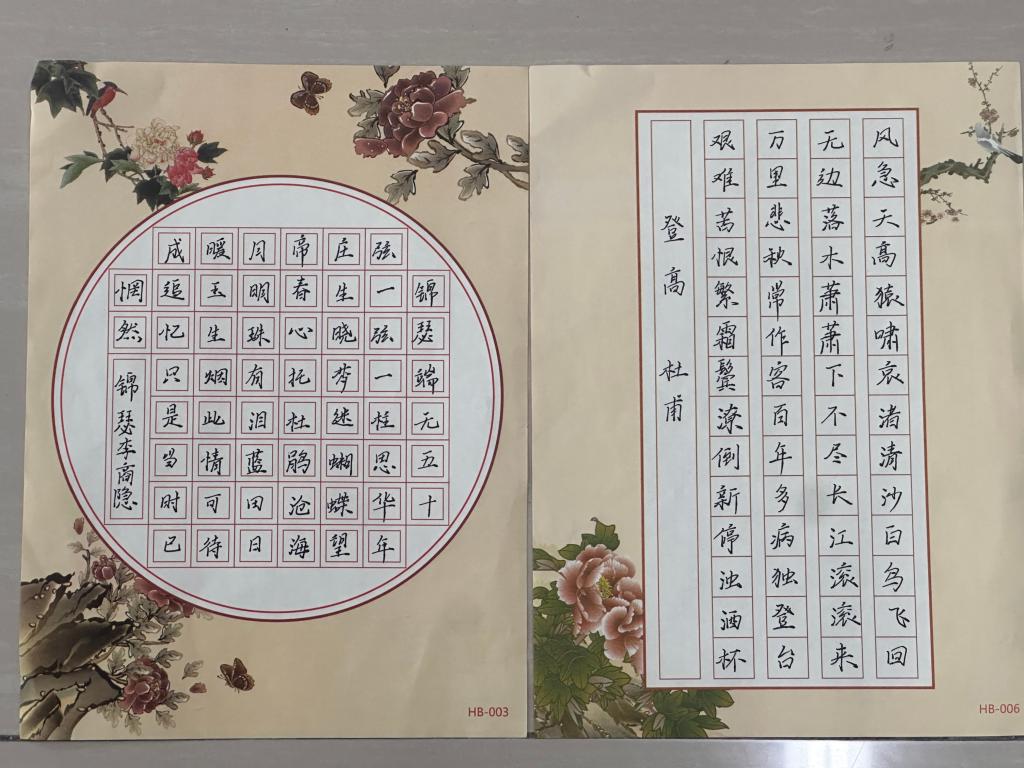 锦瑟端无五十
弦一弦一柱思华年
庄生晓梦迷蝴蝶望
帝春心托杜鹃沧海
月明珠有泪蓝田日
暖玉生烟此情可待
成追忆只是当时已
惘然
锦瑟李商隐
HB-003
风急天高猿啸哀渚清沙白鸟飞回
无边落木萧萧下不尽长江滚滚来
万里悲秋常作客百年多病独登台
艰难苦恨繁霜鬓潦倒新停浊酒杯
登高 杜甫
HB-006